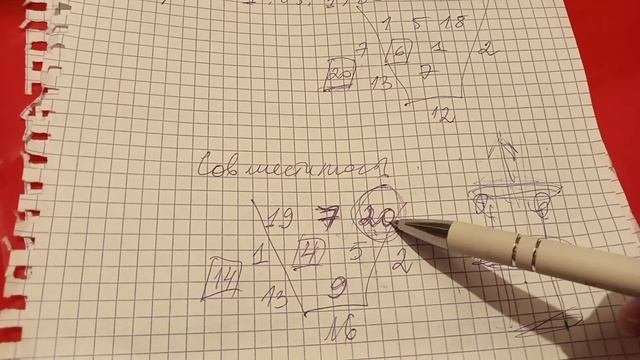 1 5 18
7 6 1 2
20 13 7
12
Совместимость
19 7 20
1 4 5 2
14 13 9
16